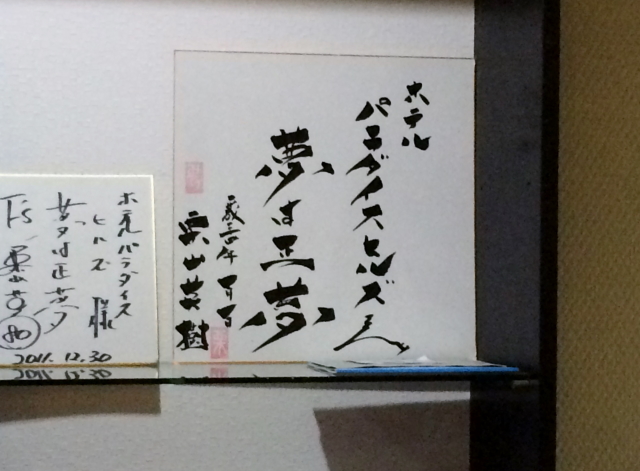 ホテル
パラダイスヒルズさん
夢は正夢
栗山英樹
ホテルパラダイス
ヒルズ 様
夢は正夢
80
2011.12.30